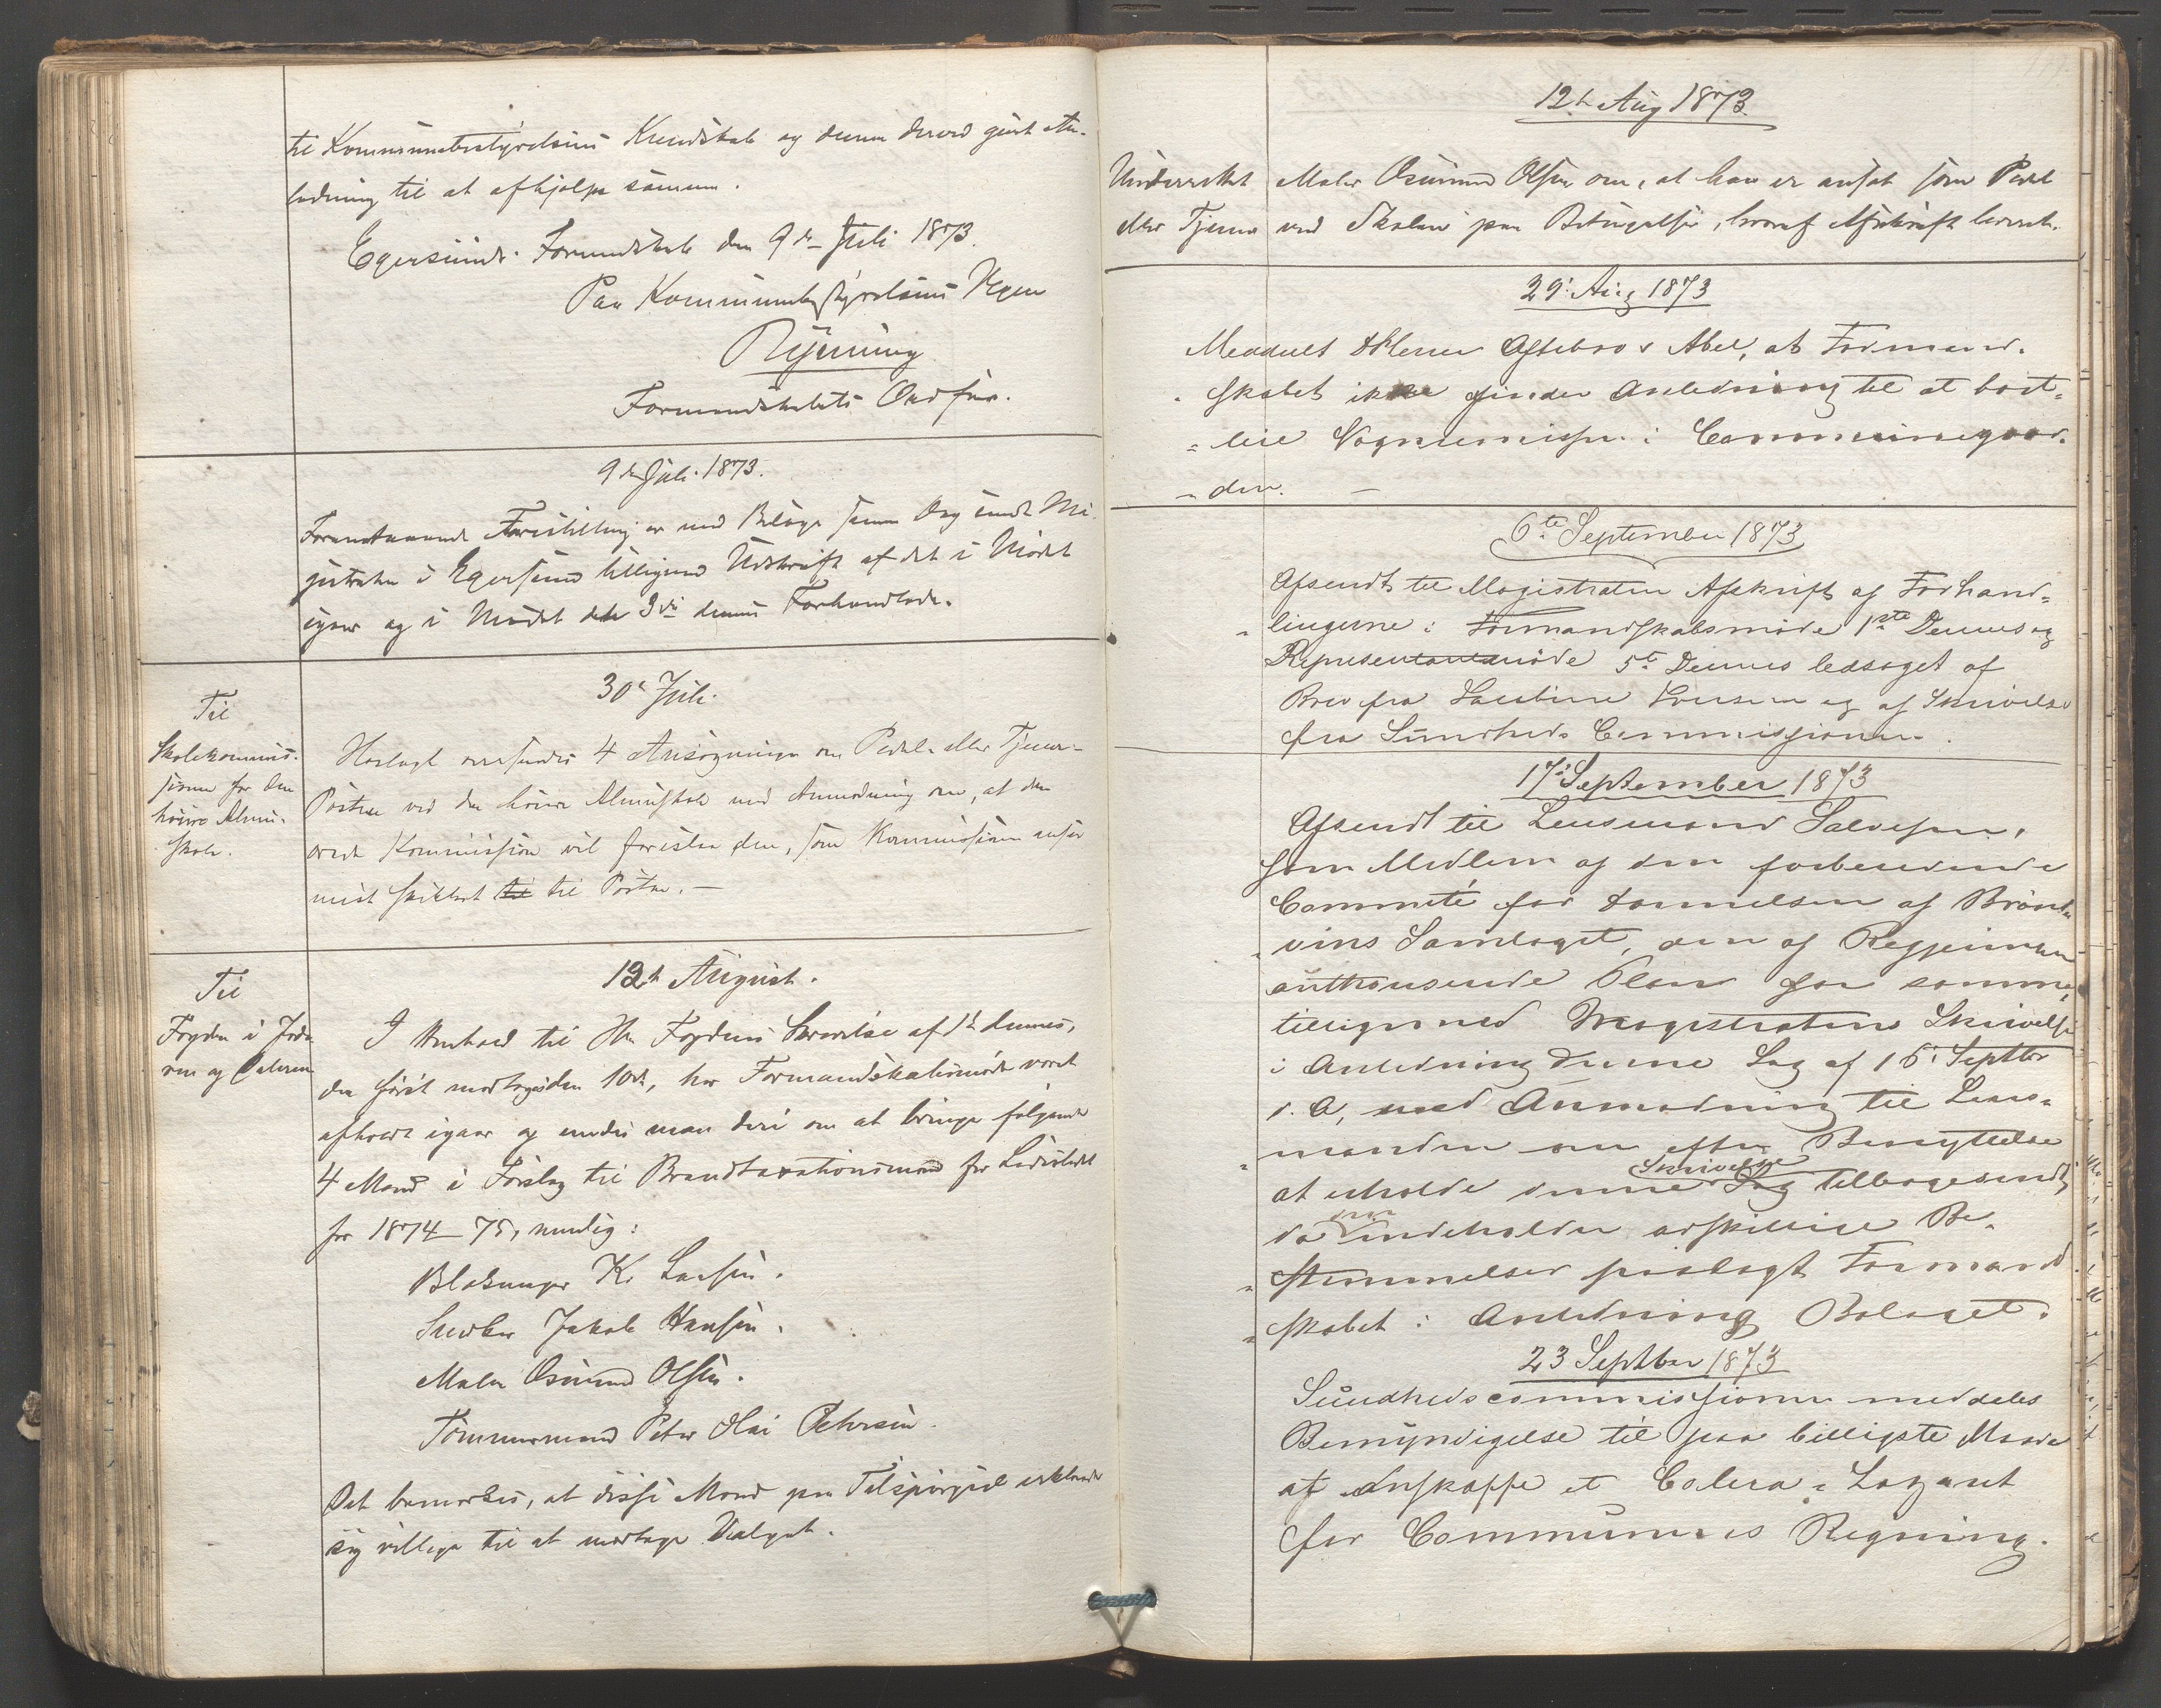 til Kommunebestyrelsens Kundskab og denne derved givet An-
ledning til at afhjælpe samme.
Egersunds Formandskab den 9de Juli 1873.
Paa Kommunebestyrelsens Vegne
Formandskabets Ordfører.
9de Juli 1873.
Foranstaaende Forestilling er med Bilage samme Dag sendt Ma-
gistraten i Egersund tilligemed Udskrift af det i Mødet
igaar og i Mødet den 3die dennes Forhandlede.
30te Juli
Til
Skolekommis-
sionen for den
høiere Almu-
skole.
Hoslagt oversendes 4 Ansøgninger om Pedel- eller Tjener-
Posten ved den høiere Almuskole med Anmodning om, at den
ærede Kommission vil foreslaa den, som Kommissionen anser
mest skikket til Posten. —
12te August.
Til
Fogden i Jæde-
ren og Dalerne
I Henhold til Hr. Fogdens Skrivelse af 1ste dennes,
der først modtoges den 10de, har Formandskabsmøde været
afholdt igaar og enedes man deri om at bringe følgende
4 Mænd i Forslag til Brandtaxationsmænd for Ladestedet
for 1874-75, nemlig:
K. Larsen.
Snedker Jakob Hansen.
Maler Osmund Olsen.
Tømmermand Peter Olai Petersen.
Det bemærkes, at disse Mænd paa Tilspørgsel erklærede
sig villige til at modtage Valget.
12te Aug 1873
Underrettet Maler Osmund Olsen om, at han er ansat som Pedel
eller Tjener ved Skolen paa Betingelser, hvoraf Afskrift
29. Aug 1873
Meddelt DHerrer Abel, at Formand-
skabet ikke finder Anledning til at bort-
leie Vognremissen i Communegaar-
den. —
6te September 1873
Afsendt til Magistraten Afskrift af Forhand-
lingerne i Formandskabsmøde 1ste Dennes og
Representantmøde 5te Dennes ledsaget af
Brev fra og af Skrivelse
fra Sundheds Commissionen.
17. September 1873
Afsendt til Lensmand Salvesen,
som Medlem af den forberedende
Committé for Dannelsen af Brænde-
vins Samlaget, den af Regjeringen
Plan for samme,
tilligemed Magistratens Skrivelse
i Anledning denne Sag af 15. Septbr
d. A, med Anmodning til Lens-
manden om efter Benyttelse
at erholde denne Skrivelse tilbagesendt,
da den indeholder adskillige Be-
stemmelser Formand-
skabet i Anledning Bolaget.
23 Septbr 1873
Sundhedscommissionen meddeles
Bemyndigelse til paa billigste Maade
at anskaffe et Colera-Lazaret
for Communens Regning.